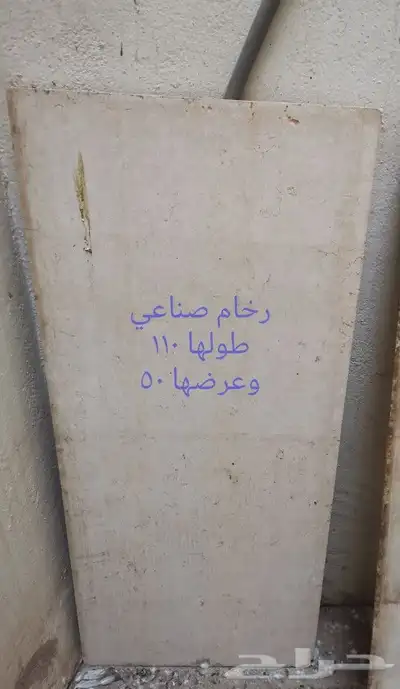 رخام صناعي
طولها ١١٠
وعرضها ٥٠
حراج